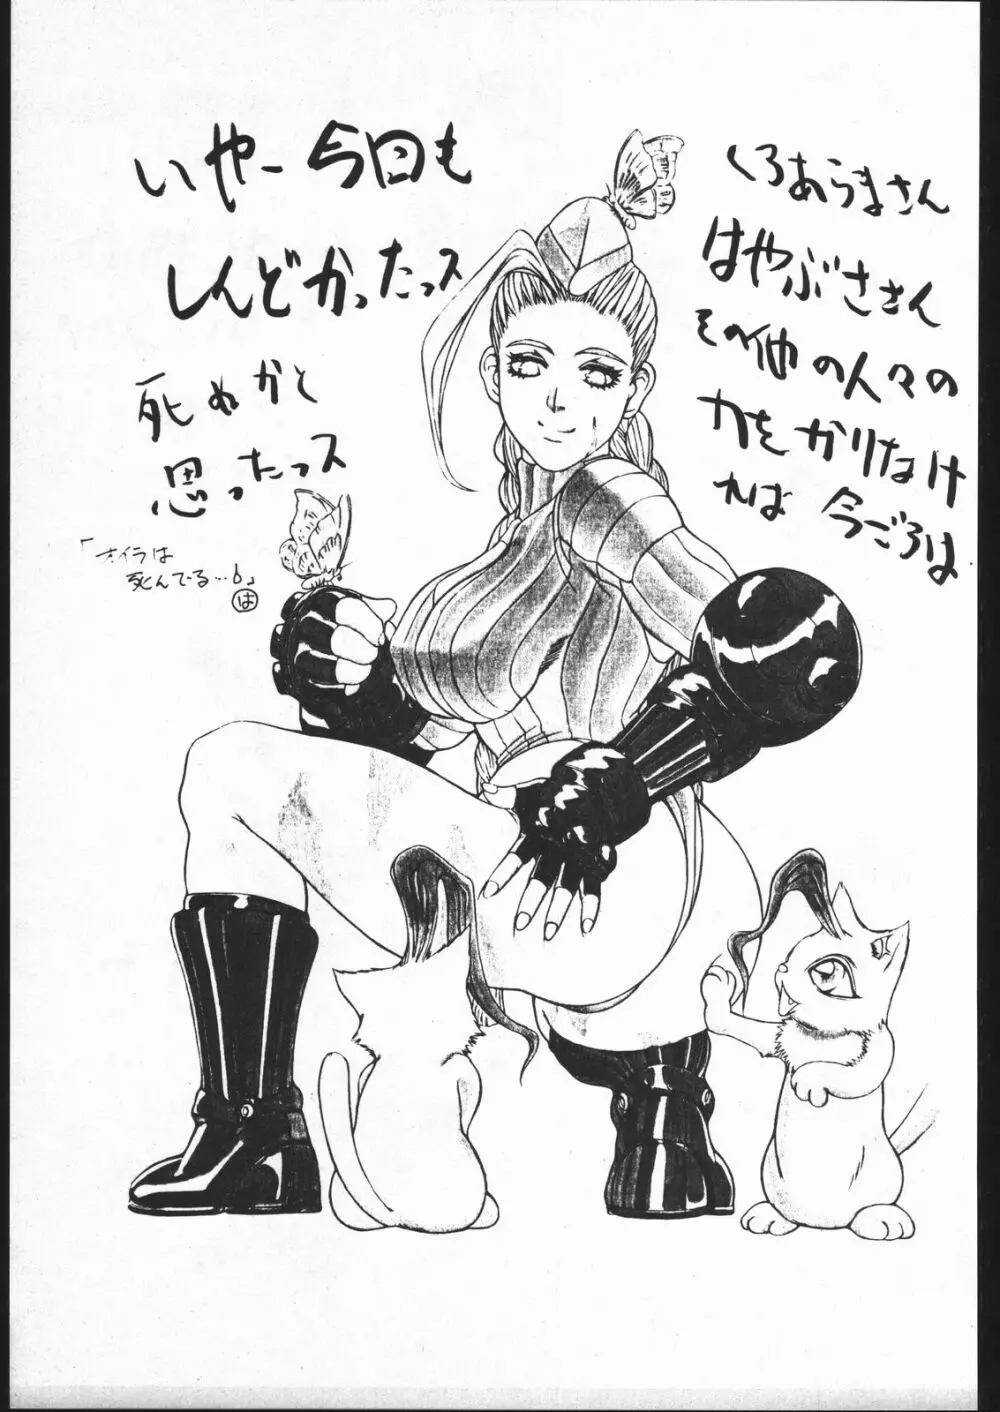 いやー今回も
しんどかったっス
死ぬかと
思ったっス
「オイラは
死んでる…」
は
くろあらまさん
はやぶささん
その他の人々の
力をかりなけ
れば 今ごろは